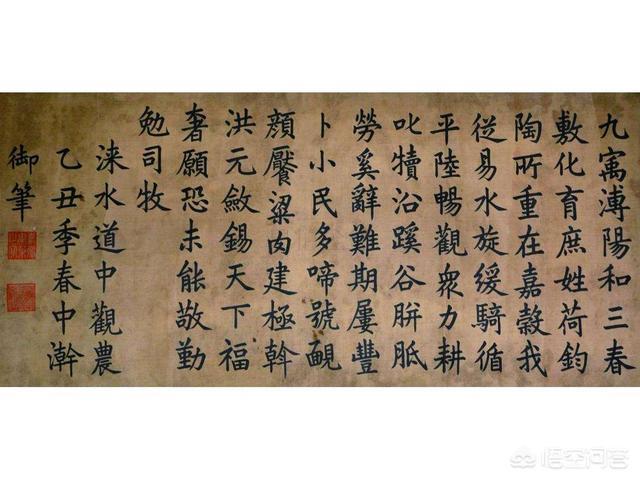 九寓溥陽和三春
敷化育庶姓荷鈞
陶所重在嘉穀我
從易水旋緩騎循
平陸暢觀衆力耕
叱犢沿蹊谷胼胝
勞奚辭難期屢豐
卜小民多啼號覥
顏饜粱肉建極斡
洪元斂錫天下福
奢願恐未能敬勤
勉司牧
涞水道中觀農
乙丑季春中澣
御筆
悟空问答